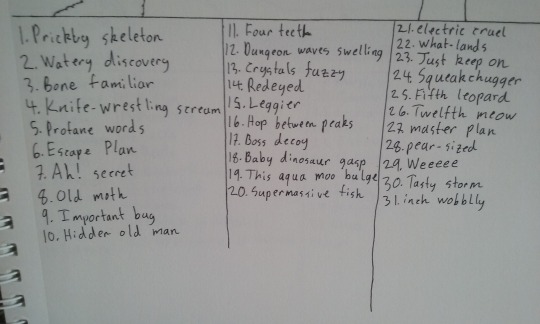 1. Prickby skeleton
2. Watery discovery
3. Bone familiar
4. Knife-wrestling scream
5. Profane words
6. Escape Plan
7. Ah! secret
8. Old moth
9. Important bug
10. Hidden old man
11. Four teeth
12. Dungeon waves swelling
13. Crystals fuzzy
14. Redeyed
15. Leggier
16. Hop between peaks
17. Boss decoy
18. Baby dinosaur gasp
19. This aqua moo bulge
20. Supermassive fish
21. electric cruel
22. What-lands
23. Just keep on
24. Squeakchugger
25. Fifth leopard
26. Twelfth meow
27. master plan
28. pear-sized
29. Weeeee
30. Tasty storm
31. inch wobblly